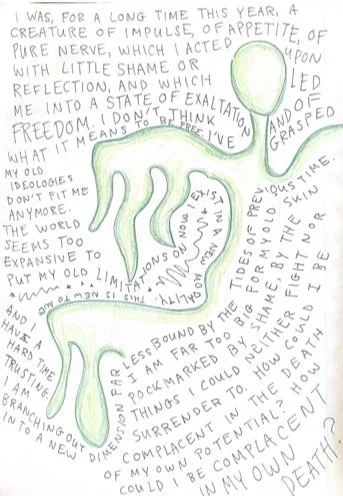 I WAS, FOR A LONG TIME THIS YEAR, A
CREATURE OF IMPULSE, OF APPETITE, OF
PURE NERVE, WHICH I ACTED UPON
WITH LITTLE SHAME OR
REFLECTION, AND WHICH LED
ME INTO A STATE OF EXALTATION AND OF
FREEDOM. I DON'T THINK I'VE GRASPED
WHAT IT MEANS TO BE FREE.
MY OLD
IDEOLOGIES
DON'T FIT ME
ANYMORE.
THE WORLD
SEEMS TOO
EXPANSIVE TO
PUT MY OLD LIMITATIONS ON NOW. I EXIST IN A NEW MORALITY.
THIS IS NEW TO ME
AND I
HAVE A
HARD TIME
TRUSTING.
I AM
BRANCHING OUT
INTO A NEW DIMENSION FAR LESS BOUND BY THE TIDES OF PREVIOUS TIME.
I AM FAR TOO BIG FOR MY OLD SKIN
POCKMARKED BY SHAME, BY THE
THINGS I COULD NEITHER FIGHT NOR
SURRENDER TO. HOW COULD I BE
COMPLACENT IN THE DEATH
OF MY OWN POTENTIAL? HOW
COULD I BE COMPLACENT
IN MY OWN
DEATH?